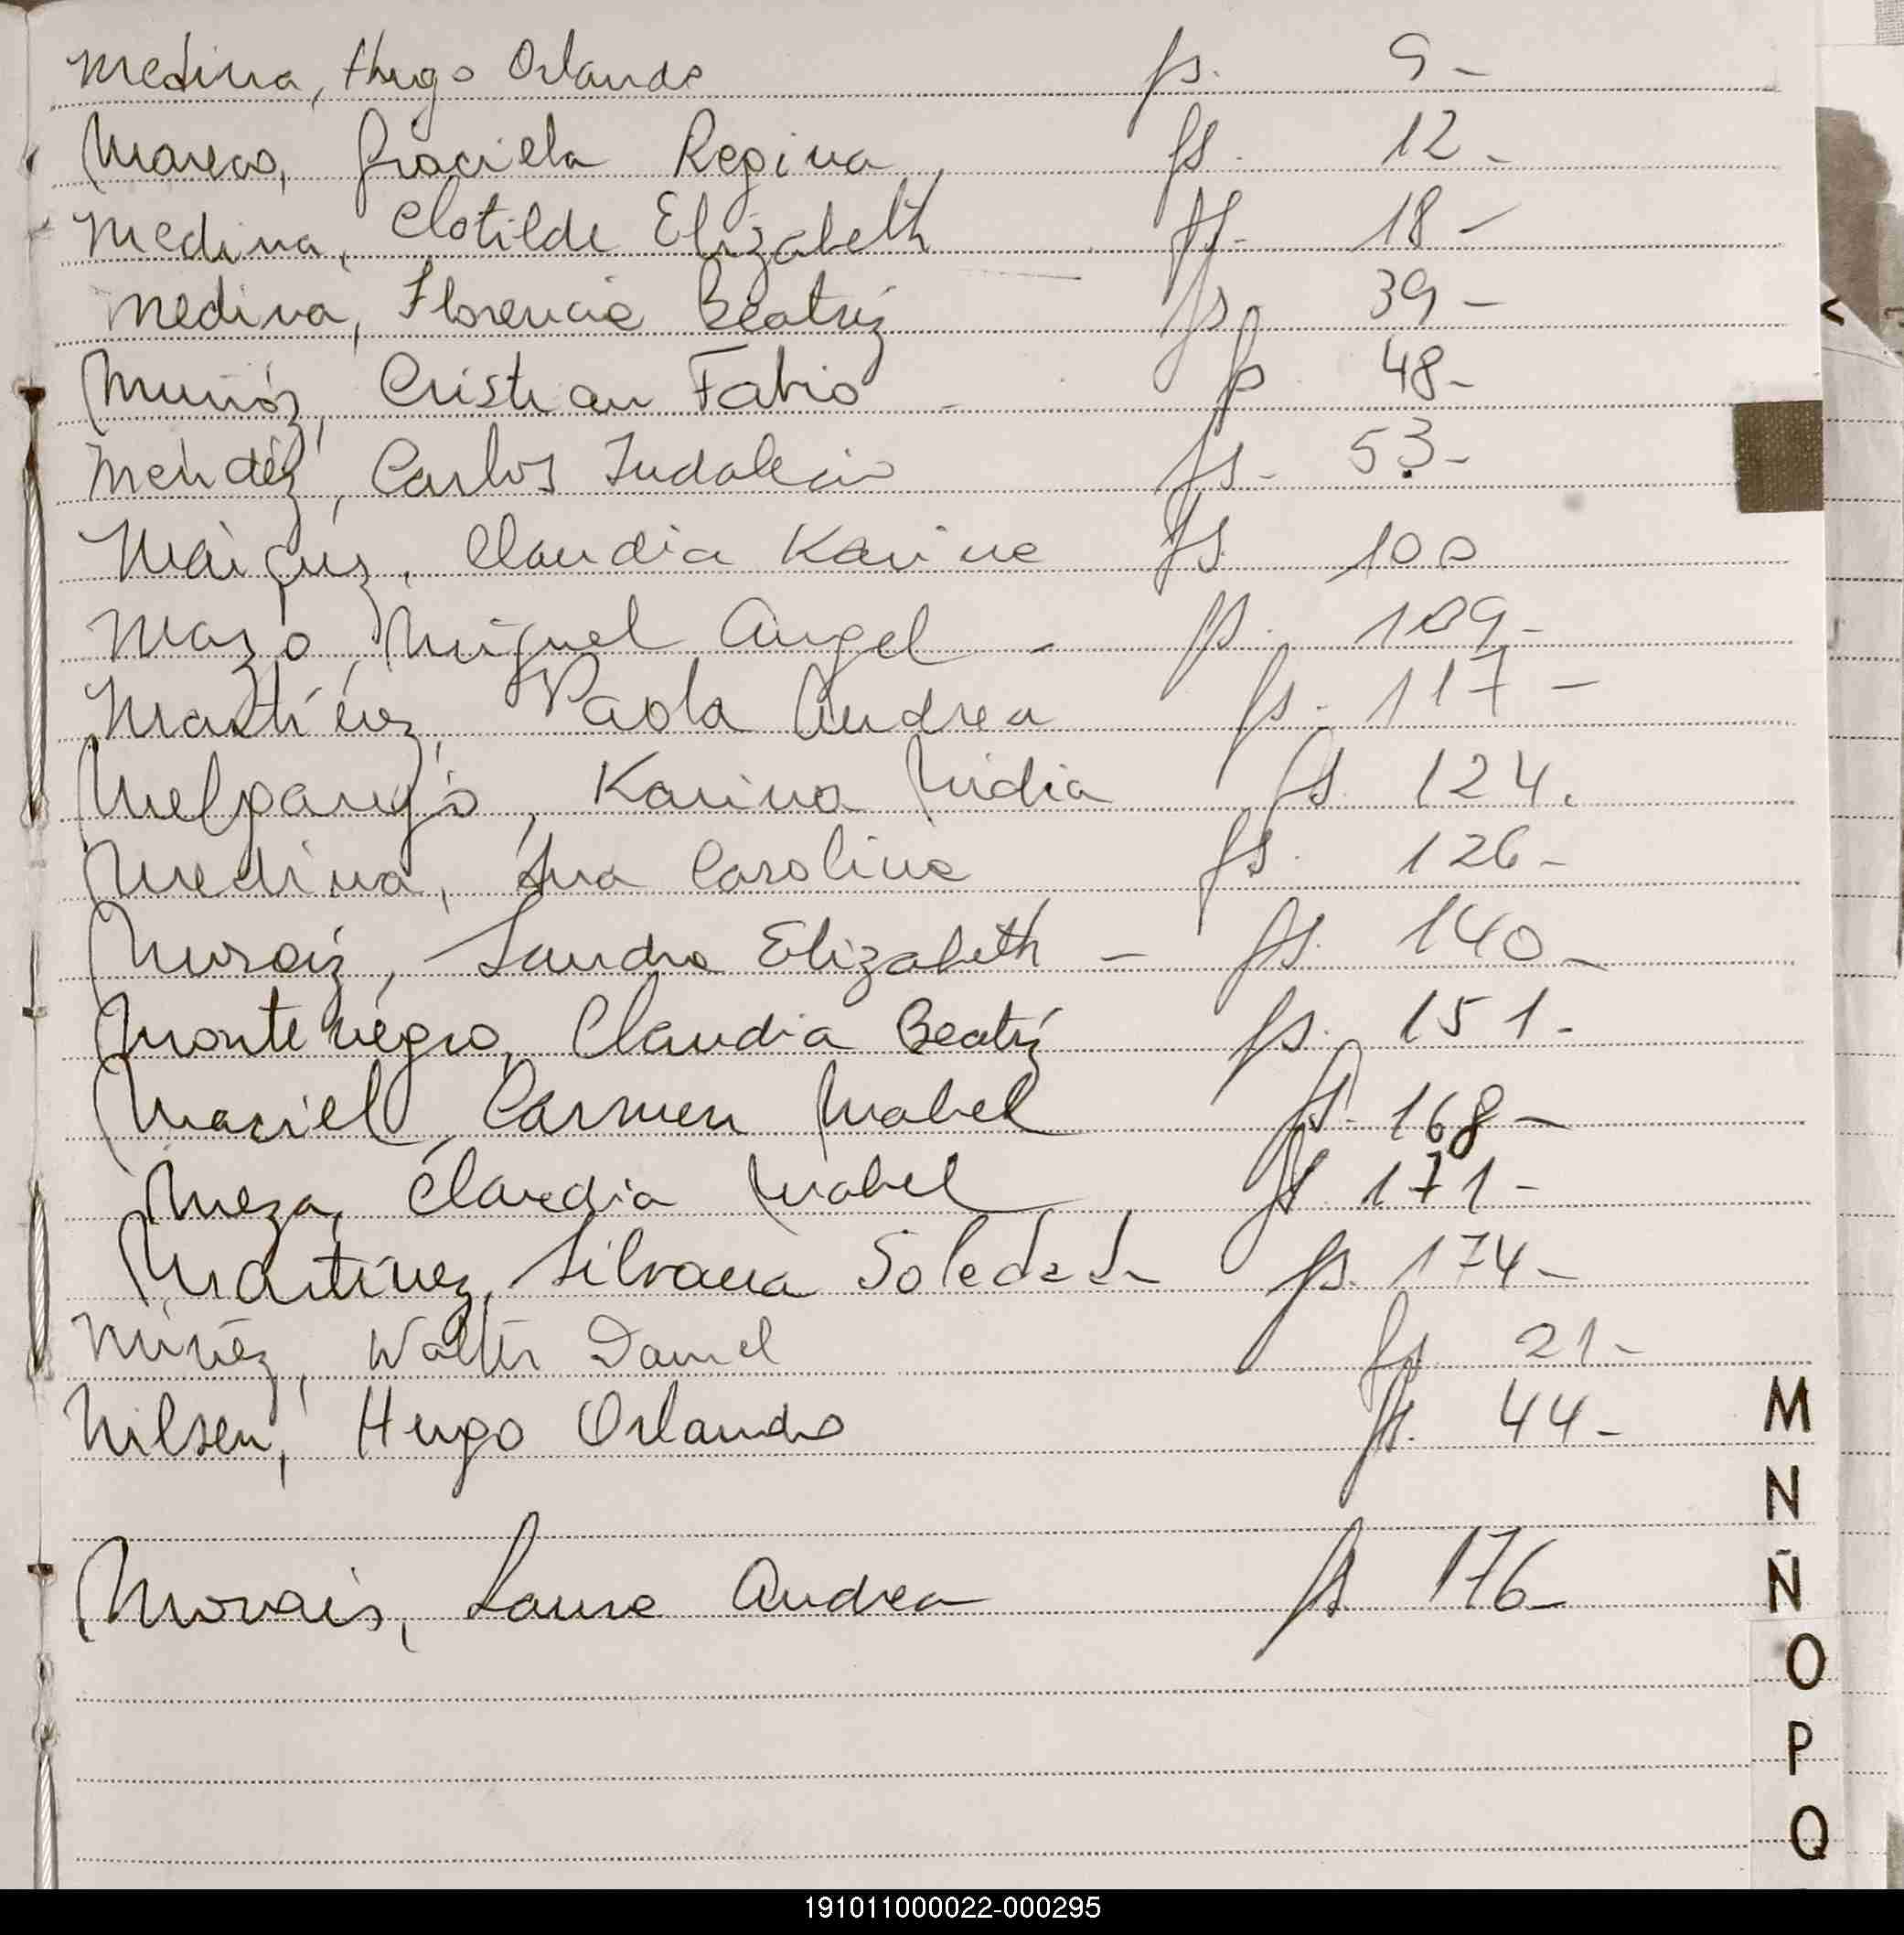 Medina, Hugo Orlando fs. 9-
Mareco, Graciela Regina fs. 12-
Medina, Clotilde Elizabeth fs. 18-
Medina, Florencia Beatriz fs. 39-
Muñóz, Cristian Fabio - fs. 48-
Mendéz, Carlos Indalecio fs. 53-
Claudia Karina fs. 100
Mazo, Miguel Angel - fs. 109-
Martínez, Paola Andrea fs. 117-
Karina fs. 124.
Medina, Ana Carolina fs. 126-
Sandra Elizabeth - fs. 140-
Montenegro, Claudia Beatríz fs. 151-
Maciel, Carmen Mabel fs. 168-
Meza, Claudia Mabel fs 171-
Martínez, Silvana Soledad- fs. 174-
Núñez, Walter Daniel fs. 21-
Nilsen, Hugo Orlando fs. 44-
Morais, Laura Andrea fs 176-
M
N
Ñ
O
P
Q
191011000022-000295